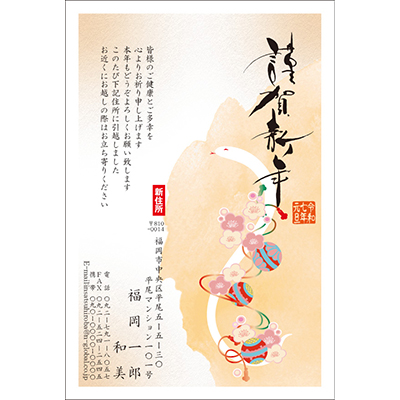 謹賀新年
令和
七年
元旦
皆様のご健康とご多幸を
心よりお祈り申し上げます
本年もどうぞよろしくお願い致します
このたび下記住所に引越しました
お近くにお越しの際はお立ち寄りください
新住所
〒810
-0014
福岡市中央区平尾五-五-三〇
平尾マンション一〇一号
福岡一郎
和美
電話 〇九二-七九一-八〇五七
FAX 〇九二-五二四-二五四五
携帯 〇九〇-〇〇〇〇-〇〇〇〇